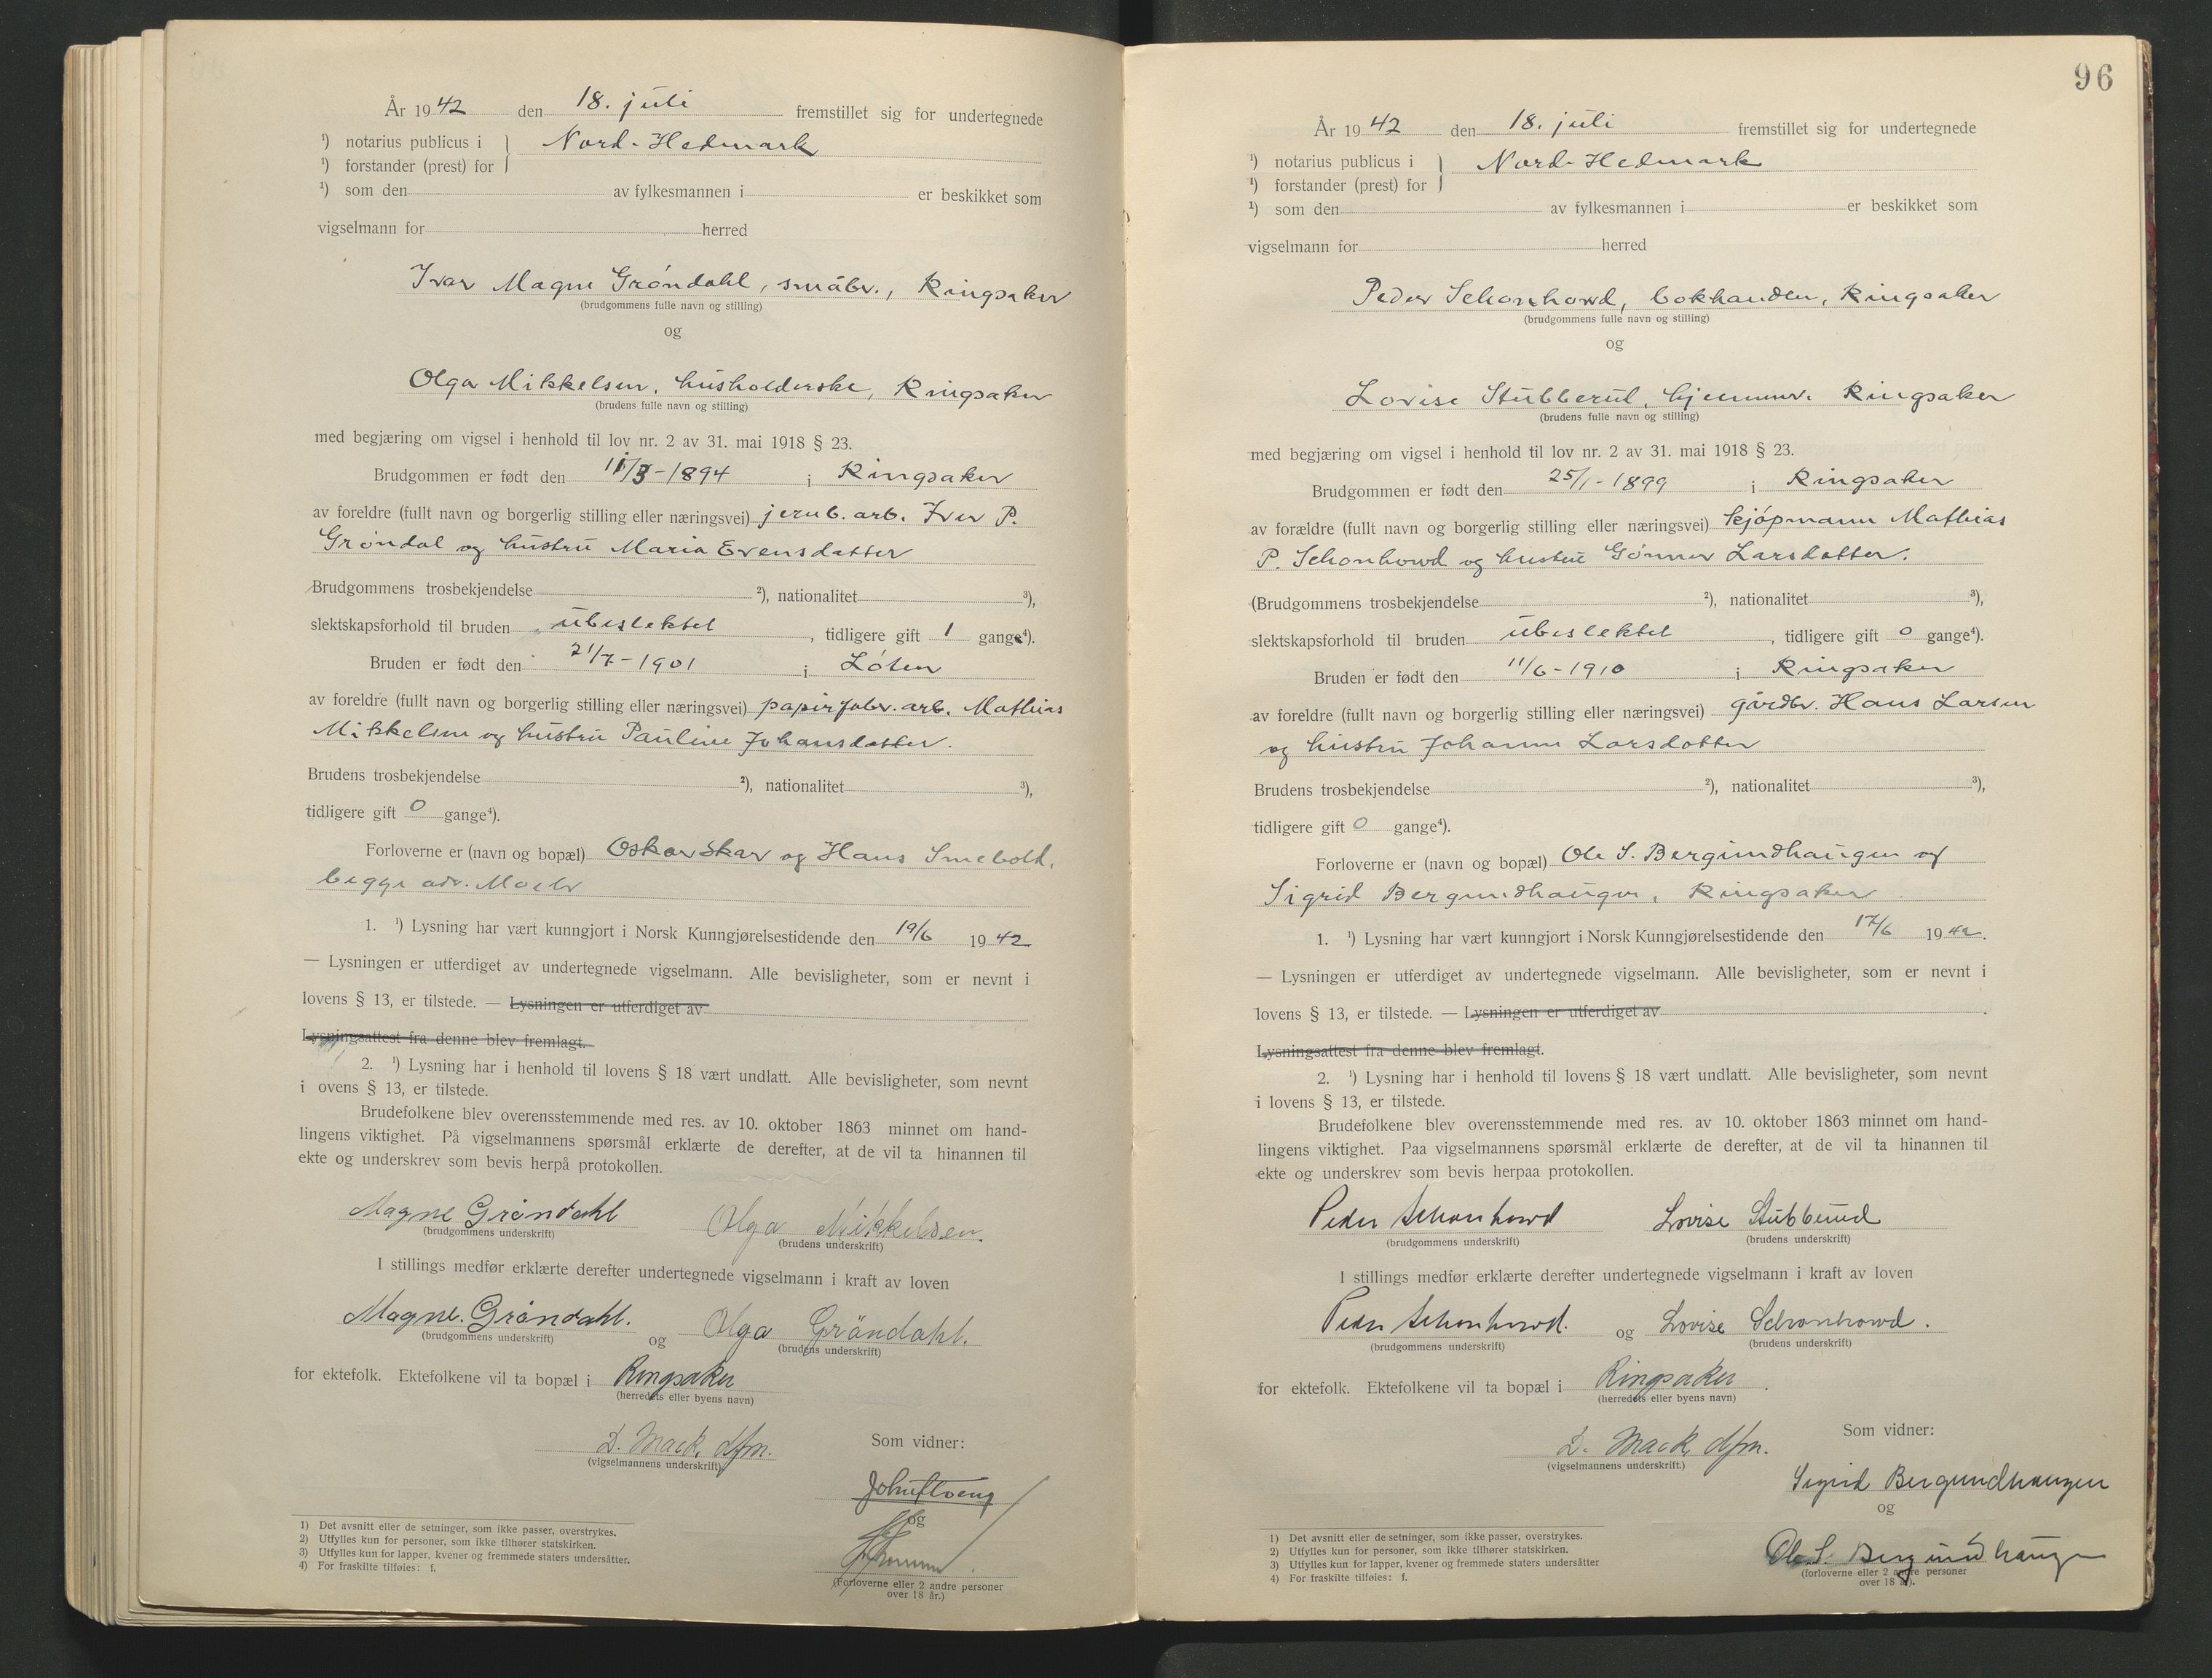 År 1942 den 18. juli fremstillet sig for undertegnede
¹) notarius publicus i } Nord-Hedmark
¹) forstander (prest) for
¹) som den av fylkesmannen i er beskikket som
vigselmann for herred
Ivar Magne Gröndahl, småbr., Ringsaker
(brudgommens fulle navn og stilling)
og
Olga Mikkelsen, husholderske, Ringsaker
(brudens fulle navn og stilling)
med begjæring om vigsel i henhold til lov nr. 2 av 31. mai 1918 § 23.
Brudgommen er født den 11/3-1894 i Ringsaker
av foreldre (fullt navn og borgerlig stilling eller næringsvei) jernb. arb. Iver P.
Gröndal og hustru Maria Evensdatter
Brudgommens trosbekjendelse ²), nationalitet ³),
slektskapsforhold til bruden ubeslektet, tidligere gift 1 gange⁴).
Bruden er født den 21/7-1901 i Löten
av foreldre (fullt navn og borgerlig stilling eller næringsvei) papirfabr. arb. Mathias
Mikkelsen og hustru Pauline Johansdatter.
Brudens trosbekjendelse ²), nationalitet ³),
tidligere gift 0 gange⁴).
Forloverne er (navn og bopæl) Oskar Skar og Hans Smebold,
begge adr. Moelv
1. ¹) Lysning har vært kunngjort i Norsk Kunngjørelsestidende den 19/6 1942
— Lysningen er utferdiget av undertegnede vigselmann. Alle bevisligheter, som er nevnt i
lovens § 13, er tilstede. — Lysningen er utferdiget av
Lysningsattest fra denne blev fremlagt.
2. ¹) Lysning har i henhold til lovens § 18 vært undlatt. Alle bevisligheter, som nevnt
i ovens § 13, er tilstede.
Brudefolkene blev overensstemmende med res. av 10. oktober 1863 minnet om hand-
lingens viktighet. På vigselmannens spørsmål erklærte de derefter, at de vil ta hinannen til
ekte og underskrev som bevis herpå protokollen.
Magne Gröndahl Olga Mikkelsen.
(brudgommens underskrift) (brudens underskrift)
I stillings medfør erklærte derefter undertegnede vigselmann i kraft av loven
Magne Gröndahl. og Olga Gröndahl.
(brudgommens underskrift) (brudens underskrift)
for ektefolk. Ektefolkene vil ta bopæl i Ringsaker
(herredets eller byens navn)
D. Mack, dfm.
(vigselmannens underskrift)
Som vidner:
og
(Forloverne eller 2 andre personer
over 18 år.)
1) Det avsnitt eller de setninger, som ikke passer, overstrykes.
2) Utfylles kun for personer, som ikke tilhører statskirken.
3) Utfylles kun for lapper, kvener og fremmede staters undersåtter.
4) For fraskilte tilføies: f.
96
År 1942 den 18. juli fremstillet sig for undertegnede
¹) notarius publicus i } Nord-Hedmark
¹) forstander (prest) for
¹) som den av fylkesmannen i er beskikket som
vigselmann for herred
Peder Schonhowd, bokhandler, Ringsaker
(brudgommens fulle navn og stilling)
og
Lovise Stubberud, hjemmev. Ringsaker
(brudens fulle navn og stilling)
med begjæring om vigsel i henhold til lov nr. 2 av 31. mai 1918 § 23.
Brudgommen er født den 25/1-1899 i Ringsaker
av forældre (fullt navn og borgerlig stilling eller næringsvei) kjöpmann Mathias
P. Schonhowd og hustru Gönner Larsdatter.
(Brudgommens trosbekjendelse ²), nationalitet ³),
slektskapsforhold til bruden ubeslektet, tidligere gift 0 gange⁴).
Bruden er født den 11/6-1910 i Ringsaker
av foreldre (fullt navn og borgerlig stilling eller næringsvei) gårdbr. Hans Larsen
og hustru Johanne Larsdatter
Brudens trosbekjendelse ²), nationalitet ³),
tidligere gift 0 gange⁴).
Forloverne er (navn og bopæl) Ole S. Bergundhaugen og
Sigrid Bergundhaugen, Ringsaker
1. ¹) Lysning har vært kunngjort i Norsk Kunngjørelsestidende den 17/6 1942.
— Lysningen er utferdiget av undertegnede vigselmann. Alle bevisligheter, som er nevnt i
lovens § 13, er tilstede. — Lysningen er utferdiget av
Lysningsattest fra denne blev fremlagt.
2. ¹) Lysning har i henhold til lovens § 18 vært undlatt. Alle bevisligheter, som nevnt
i lovens § 13, er tilstede.
Brudefolkene blev overensstemmende med res. av 10. oktober 1863 minnet om hand-
lingens viktighet. Paa vigselmannens spørsmål erklærte de derefter, at de vil ta hinannen til
ekte og underskrev som bevis herpaa protokollen.
Peder Schonhowd Lovise Stubberud
(brudgommens underskrift) (brudens underskrift)
I stillings medfør erklærte derefter undertegnede vigselmann i kraft av loven
Peder Schonhowd. og Lovise Schonhowd.
(brudgommens underskrift) (brudens underskrift)
for ektefolk. Ektefolkene vil ta bopæl i Ringsaker
(herredets eller byens navn)
D. Mack, dfm.
(vigselmannens underskrift.)
Som vidner:
Sigrid Bergundhaugen
og
Ole S. Bergundhaugen
(forloverne eller 2 andre personer
over 18 år).
1) Det avsnitt eller de setninger, som ikke passer, overstrykes.
2) Utfylles kun for personer, som ikke tilhører statskirken.
3) Utfylles kun for lapper, kvener og fremmede staters undersåtter
4) For fraskilte tilføies: f.